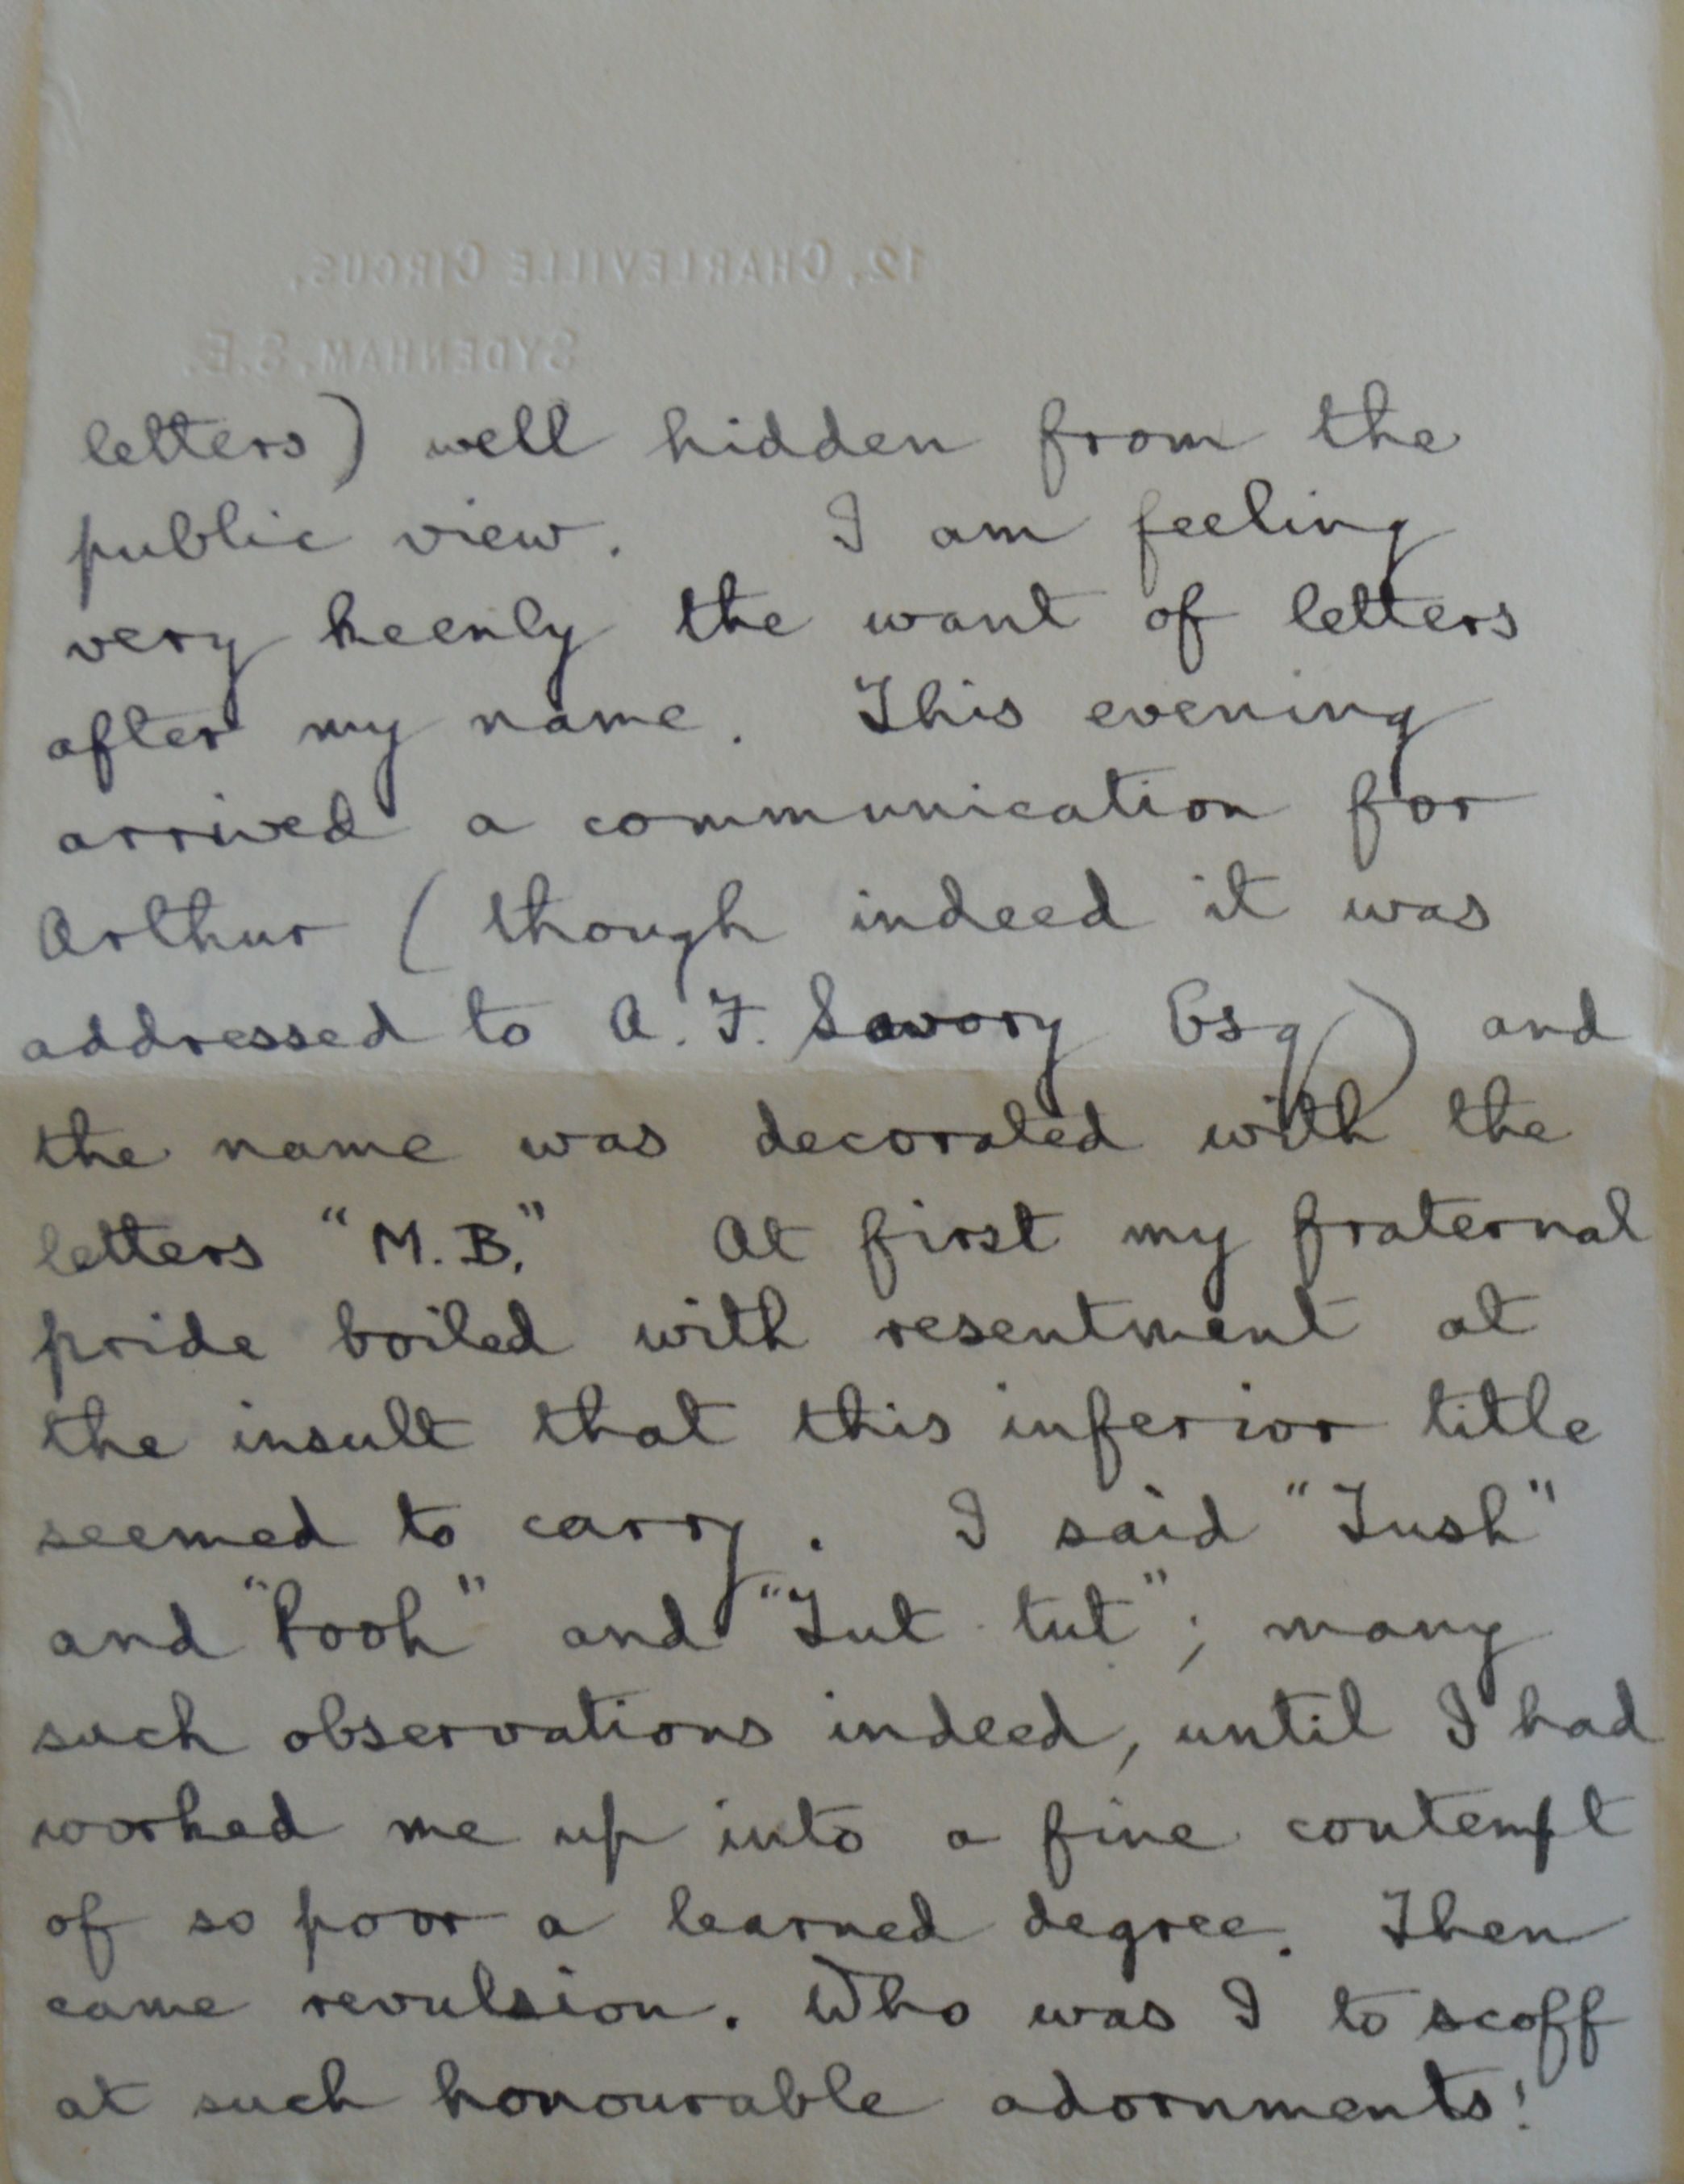 12, CHARLEVILLE CIRCUS,
SYDENHAM, S.E.
letters) well hidden from the
public view. I am feeling
very keenly the want of letters
after my name. This evening
arrived a communication for
Arthur (though indeed it was
addressed to A. F. Savory Esq) and
the name was decorated with the
letters "M.B." At first my fraternal
pride boiled with resentment at
the insult that this inferior title
seemed to carry. I said "Tush"
and "Pooh" and "Tut tut"; many
such observations indeed, until I had
worked me up into a fine contempt
of so poor a learned degree. Then
came revulsion. Who was I to scoff
at such honourable adornments!